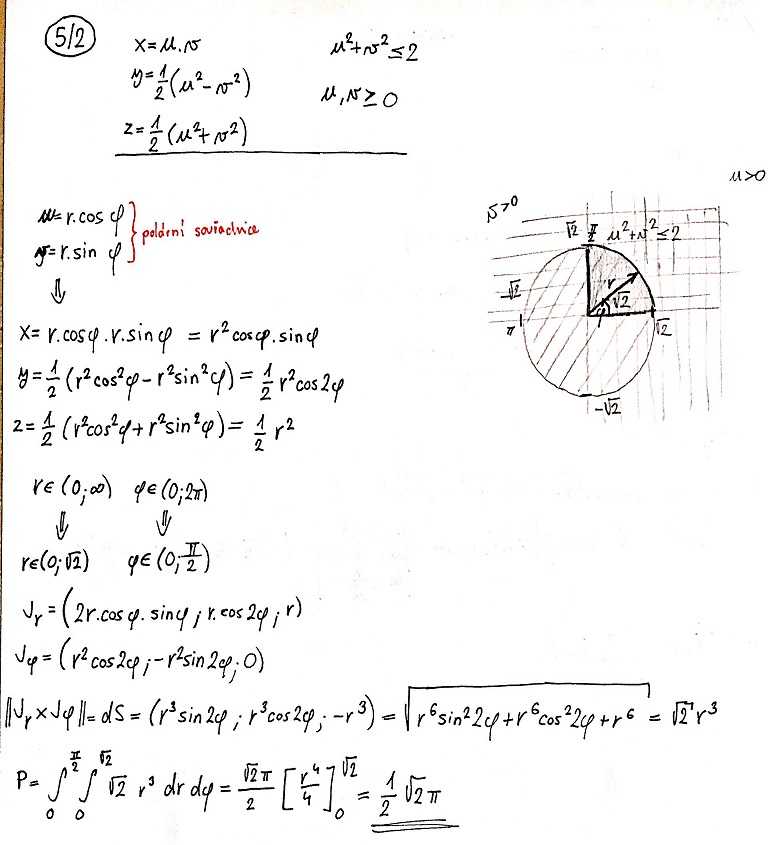 5/2
x = u.v    u² + v² ≤ 2
y = 1/2 (u² - v²)    u, v ≥ 0
z = 1/2 (u² + v²)
u = r.cos φ
v = r.sin φ } polárni súradnice
⇓
x = r.cosφ.r.sinφ = r² cosφ.sinφ
y = 1/2 (r²cos²φ - r²sin²φ) = 1/2 r²cos2φ
z = 1/2 (r²cos²φ + r²sin²φ) = 1/2 r²
r∈(0;∞)    φ∈(0;2π)
⇓    ⇓
r∈(0;√2)    φ∈(0;π/2)
Jr = (2r.cosφ.sinφ; r.cos2φ; r)
Jφ = (r²cos2φ; -r²sin2φ; 0)
||Jr × Jφ|| = dS = (r³sin2φ; r³cos2φ; -r³) = √(r⁶sin²2φ + r⁶cos²2φ + r⁶) = √2 r³
P = ∫₀^(π/2) ∫₀^(√2) √2 r³ dr dφ = √2π/2 [r⁴/4]₀^(√2) = 1/2 √2 π
u>0
v>0
√2    π/2    u² + v² ≤ 2
-√2    r    √2
π    φ    √2
-√2